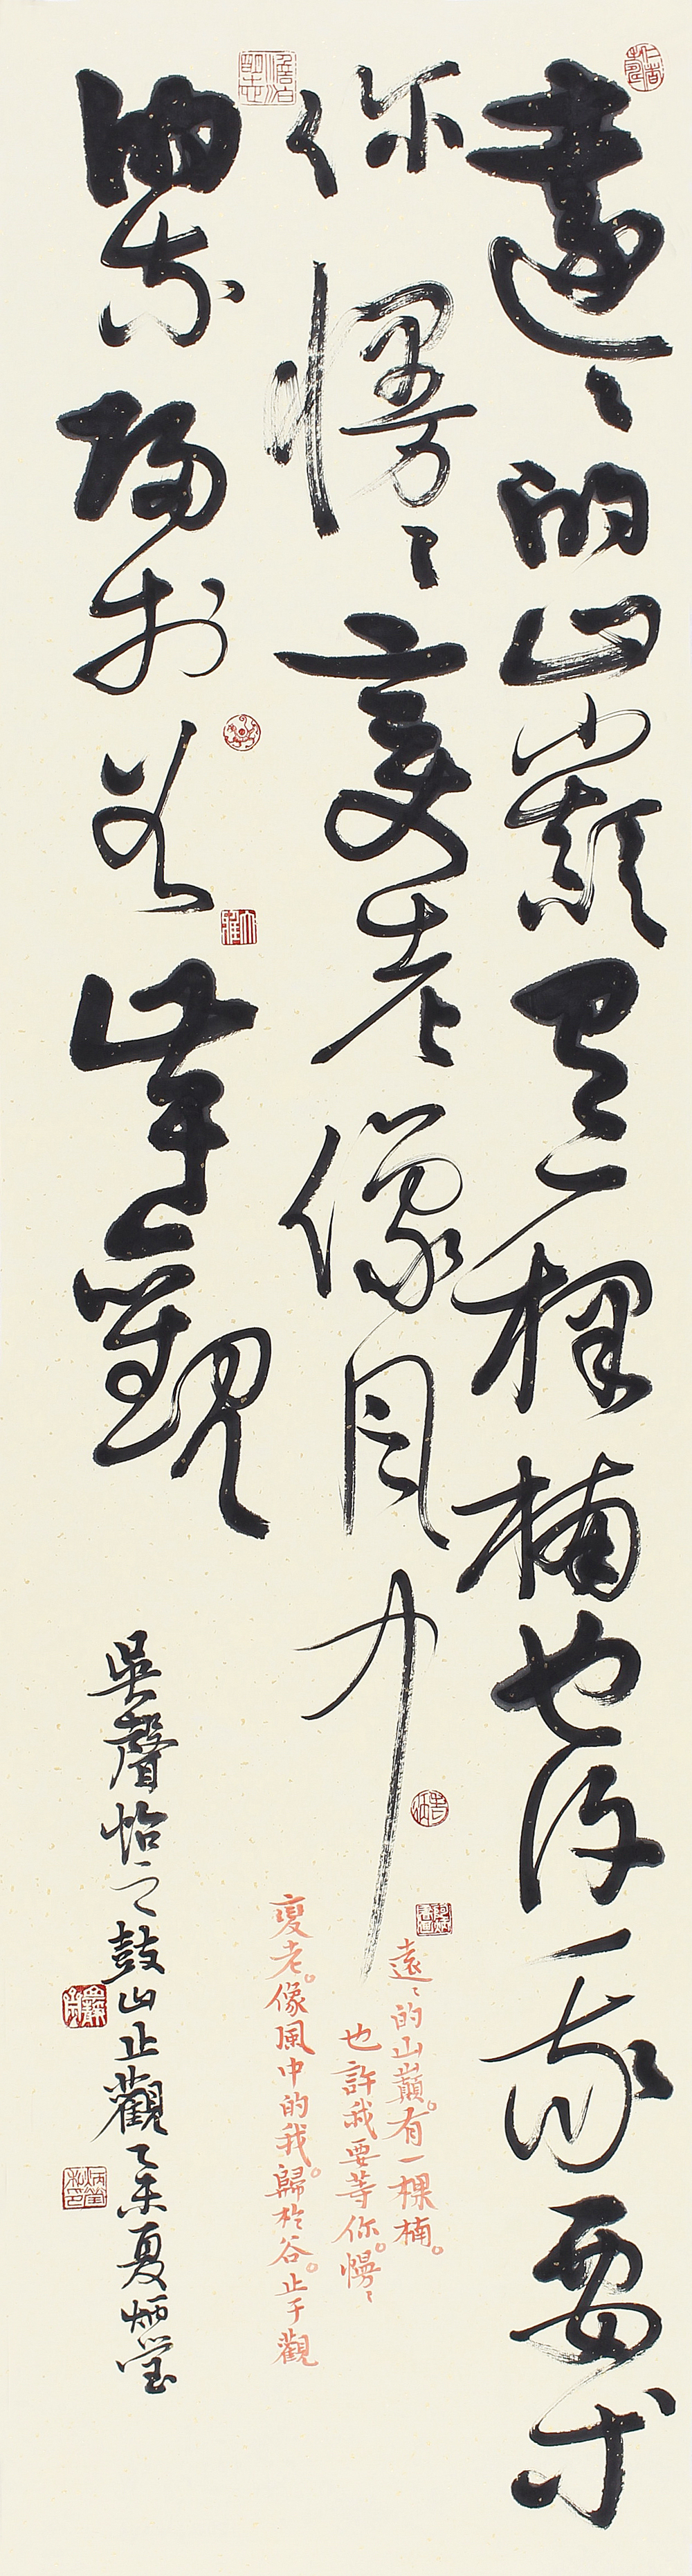 遠〻的山巔有一棵楠也許我要等
你慢〻變老像風中
的我歸於谷止于觀
吳聲怡之鼓山止觀乙未夏炳瑩
遠〻的山巔。有一棵楠。
也許我要等你。慢〻
變老。像風中的我。歸於谷。止于觀